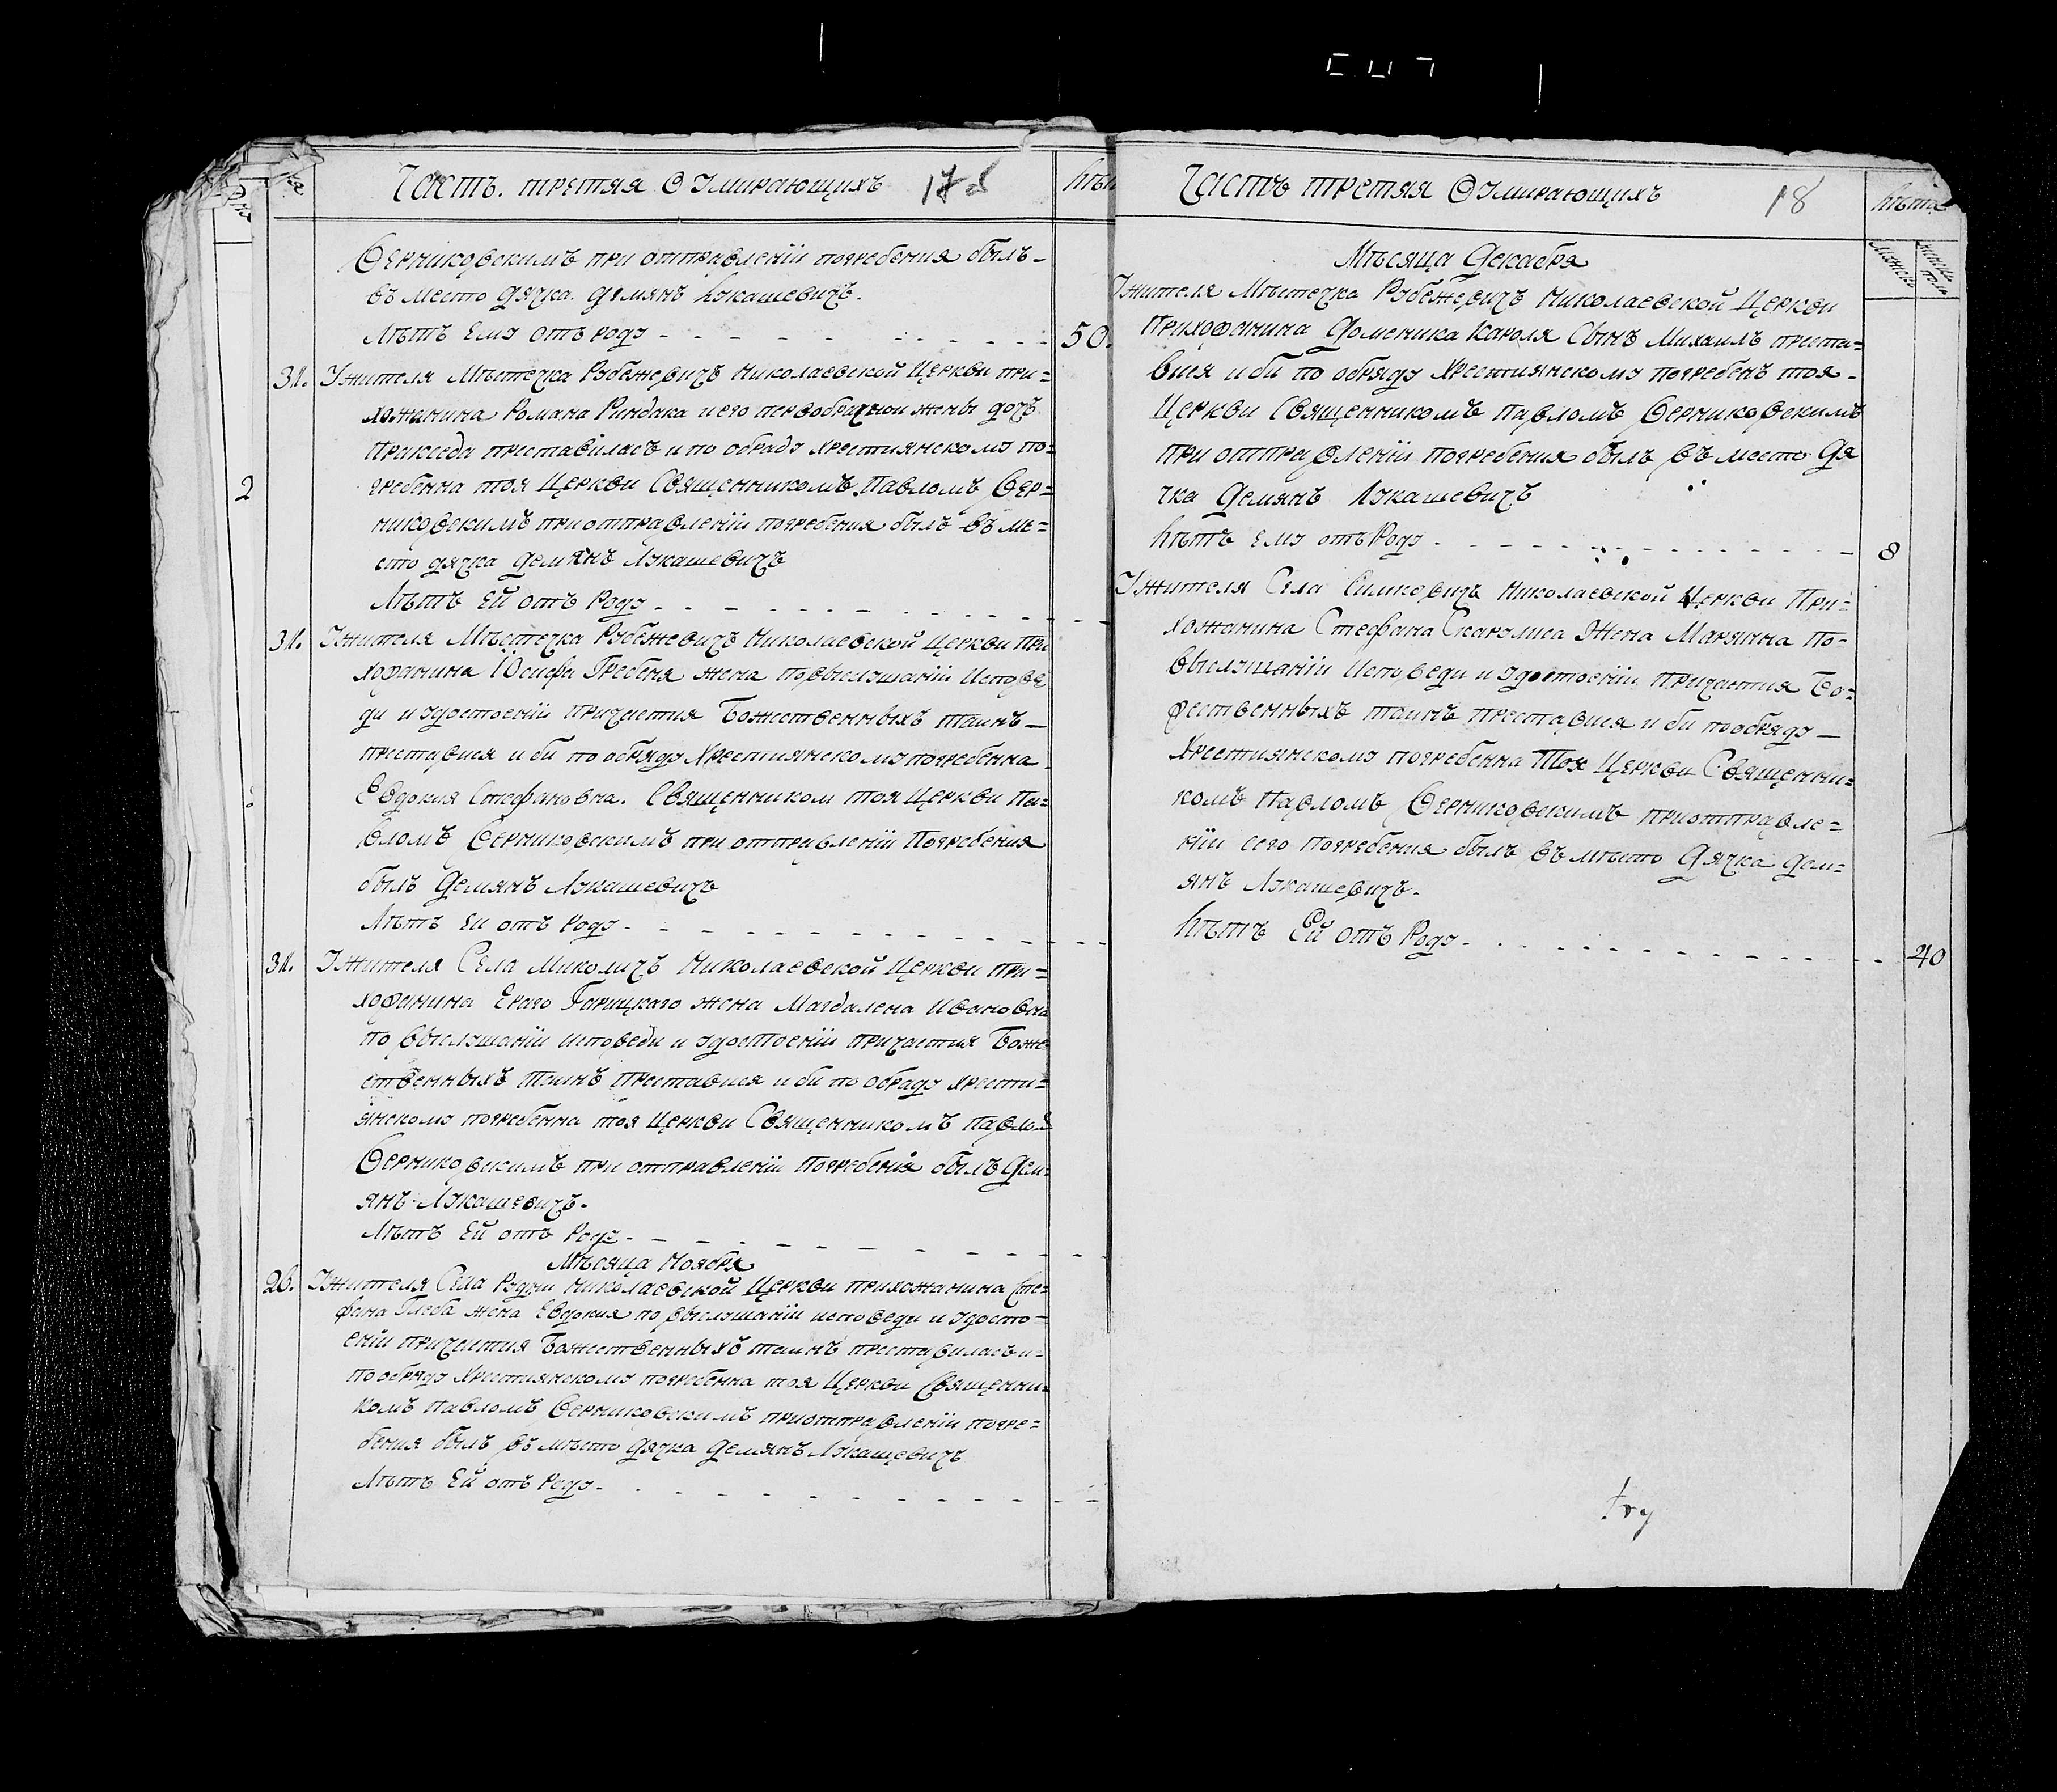 Часть. третяя О Умирающихъ 17
Серниковскимъ при отправленіи погребения былъ
въ место дячка. Демянъ Лукашевичъ.
Лѣтъ ему отъ роду 50.
31. У жителя Мѣстечка Рубежевичъ Николаевской Церкви при=
хожанина Романа Риндака и его первобрачной жены дочь
Пракседа преставіласъ и по обряду хрестиянскому по=
гребенна тоя Церкви Священникомъ Павломъ Сер=
никовскимъ при отправленіи погребения былъ въ ме=
сто дячка Демянъ Лукашевичъ
Лѣтъ ей отъ Роду
31. У Жителя Мѣстечка Рубежевичъ Николаевской Церкви При
хожанина Юсифа Гребеня жена по выслушаніи Испове
ди и удостоеніи причастия Божественныхъ таинъ
преставися и би по обряду Хрестиянскому погребенна
Евдокия Стефановна. Священником тоя Церкви Па=
вломъ Серниковскимъ при отправленіи Погребения
былъ Демянъ Лукашевичъ
Лѣтъ еи отъ Роду
31. У Жителя Села Миколичъ Николаевской Церкви при=
хожанина Гарицкаго жена Магдалена Ивановна
по выслушаніи исповеди и удостоеніи причастия Боже
ственныхъ Таинъ Преставися и би по обряду хрести=
янскому погребенна тоя Церкви Священникомъ Павло
Серниковскимъ при отправленіи Погребенія былъ Дем=
янъ Лукашевичъ.
Лѣтъ Ей отъ Роду
Мѣсяца Ноября
26. У Жителя Села Рудни Николаевской Церкви прихожанина Сте=
фана Глеба жена Евдокия по выслушаніи исповеди и удосто=
еніи причастия Божественныхъ таинъ преставиласъ и
по обряду Хрестиянскому погребенна тоя Церкви Священни=
комъ Павломъ Серниковскимъ при отправленіи погре=
бения былъ въ мѣсто дячка Демянъ Лукашевичъ
Лѣтъ Ей отъ Роду
2
Часть третяя О Умирающихъ 18
Лѣта
Мѣсяца Декабря
У жителя Мѣстечка Рубежевичъ Николаевской Церкви
Прихожанина Доменика Кароля Сынъ Михаилъ преста=
вися и би по обряду Хрестиянскому погребенъ тоя
Церкви Священникомъ Павломъ Серниковскимъ
при отправленіи погребения былъ въ место Дя
чка Демянъ Лукашевичъ
Лѣтъ ему отъ Роду 8
У жителя Села Николаевской Церкви При=
хожанина Стефана Жена Марянна По
выслушаніи Исповеди и удостоеніи Причастия Бо=
жественныхъ таинъ преставися и би по обряду
Хрестиянскому погребенна Тоя Церкви Священни=
комъ Павломъ Серниковскимъ при отправле=
ніи сего погребения былъ въ мѣсто Дячка Дем=
янъ Лукашевичъ.
Лѣтъ Ей отъ Роду 40